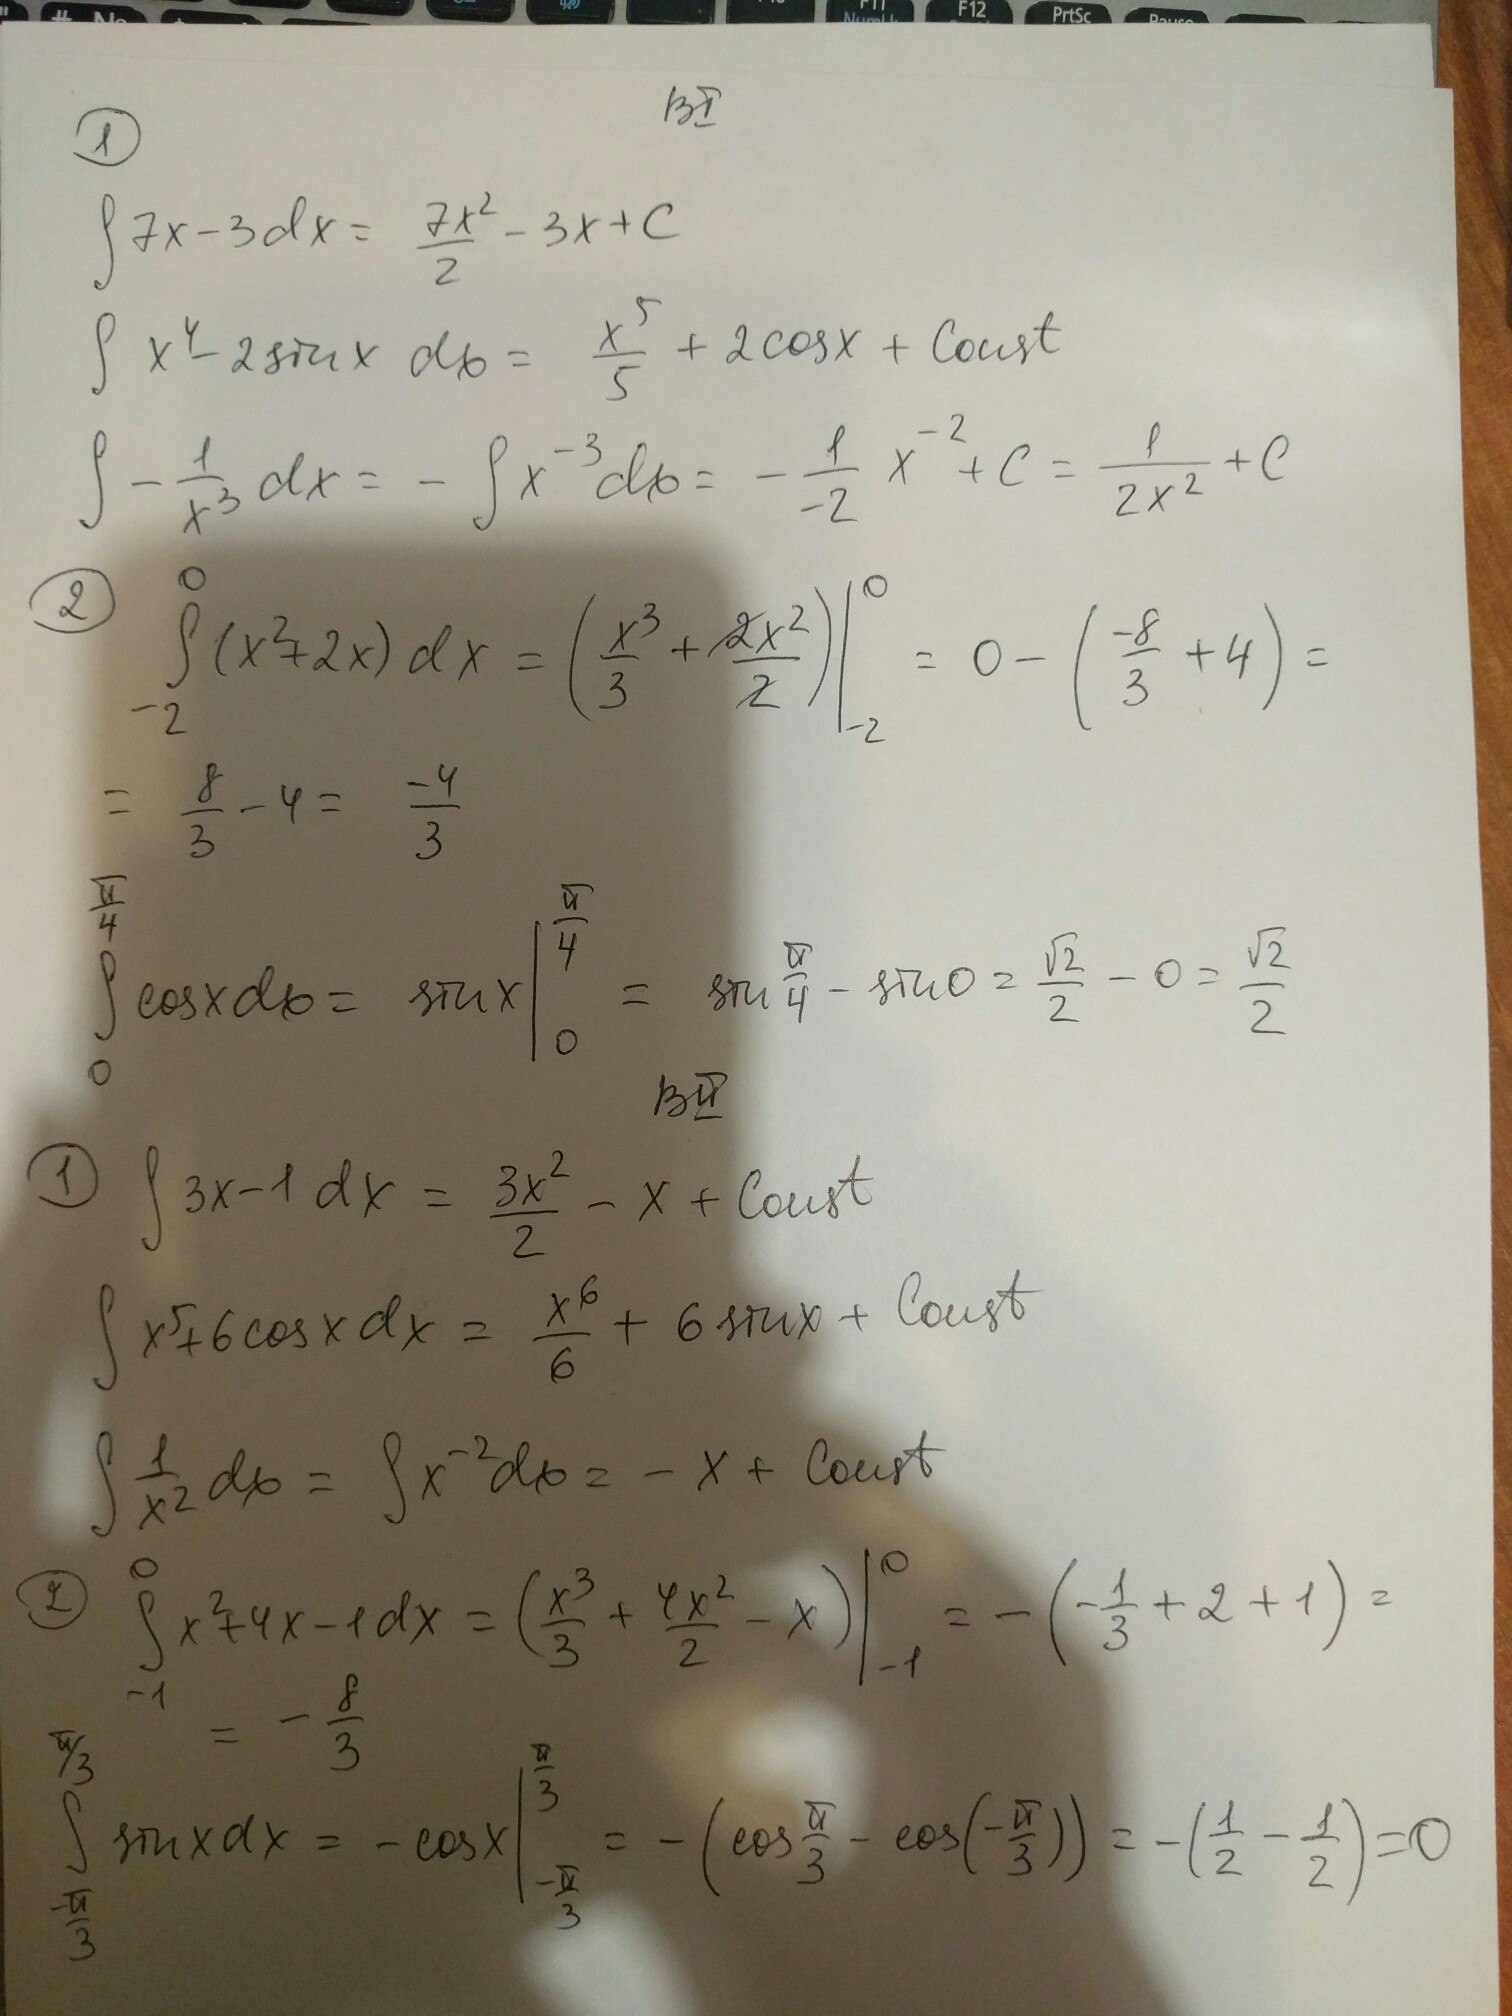 F11 F12 PrtSc Pause
NumLk
ВI
①
∫ 7x - 3dx = 7x²/2 - 3x + C
∫ x⁴ - 2sinx dx = x⁵/5 + 2cosx + Const
∫ - 1/x³ dx = - ∫ x⁻³dx = - 1/-2 x⁻² + C = 1/2x² + C
② ∫₋₂⁰ (x² + 2x) dx = (x³/3 + 2x²/2) |₋₂⁰ = 0 - (-8/3 + 4) =
= 8/3 - 4 = -4/3
∫₀^(π/4) cosxdx = sinx |₀^(π/4) = sin π/4 - sin0 = √2/2 - 0 = √2/2
ВII
① ∫ 3x - 1 dx = 3x²/2 - x + Const
∫ x⁵ + 6cosxdx = x⁶/6 + 6sinx + Const
∫ 1/x² dx = ∫ x⁻²dx = - x + Const
② ∫₋₁⁰ x² + 4x - 1dx = (x³/3 + 4x²/2 - x) |₋₁⁰ = - (-1/3 + 2 + 1) =
= - 8/3
∫_(-π/3)^(π/3) sinxdx = - cosx |_(-π/3)^(π/3) = - (cos π/3 - cos(-π/3)) = - (1/2 - 1/2) = 0